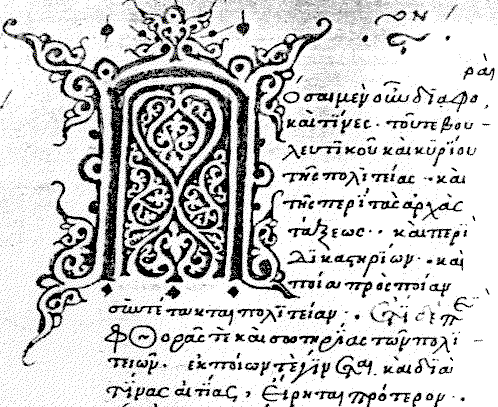 ραὶ
Πόσαι μὲν οὖν διαφο
καὶ τίνες · τοῦ τε βου
λευτικοῦ καὶ κυρίου
τῆς πολιτείας · καὶ
τῆς περὶ τὰς ἀρχὰς
τάξεως · καὶ περὶ
δικαστηρίων · καὶ
ποία πρὸς ποίαν
συντέτακται πολιτείαν · ἔτι δὲ πε
φθορᾶς τε καὶ σωτηρίας τῶν πολι
τειῶν · ἐκ ποίων τε γίνεται καὶ διὰ
τίνας αἰτίας, εἴρηται πρότερον ·